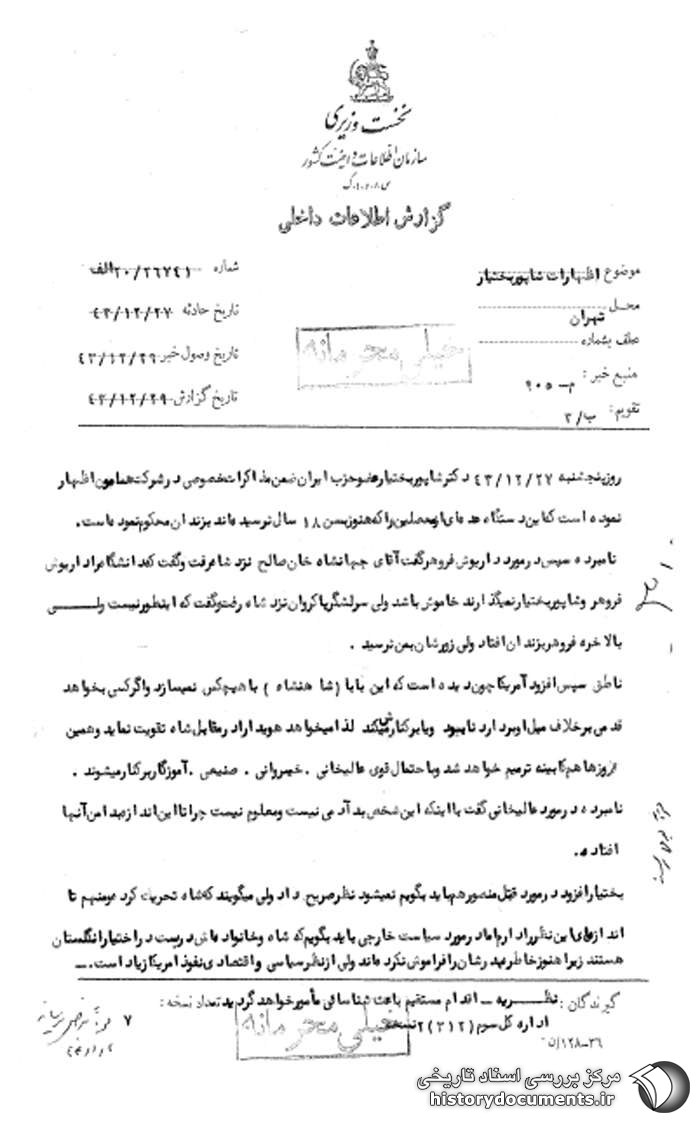 نخست وزیری
سازمان اطلاعات و امنیت کشور
س.ا.و.ا.ک
گزارش اطلاعات داخلی
موضوع اظهارات شاپور بختیار
شماره ۲۰/۲۶۷۴۱ الف
محل تهران
تاریخ حادثه ۴۳/۱۲/۲۷
عطف بشماره
تاریخ وصول خبر ۴۳/۱۲/۲۹
منبع خبر : م - ۹۰۵
تاریخ گزارش ۴۳/۱۲/۲۹
تقویم : ب/۲
خیلی محرمانه
روز پنجشنبه ۴۳/۱۲/۲۷ دکتر شاپور بختیار عضو حزب ایران ضمن مذاکرات خصوصی در شرکت همامون اظهار
نموده است که این دستگاه عده‌ای از محصلین را که هنوز بسن ۱۸ سال نرسیده‌اند بزندان محکوم نموده است .
نامبرده سپس در مورد داریوش فروهر گفت آقای جهانشاه خان صالح نزد شاه رفت و گفت که دانشگاه را داریوش
فروهر و شاپور بختیار نمیگذارند خاموش باشد ولی سرلشگر پاکروان نزد شاه رفت و گفت که اینطور نیست ولی
بالاخره فروهر بزندان افتاد ولی زورشان بمن نرسید .
ناطق سپس افزود آمریکا چون دیده است که این بابا ( شاهنشاه ) با هیچکس نمیسازد و اگر کسی بخواهد
قدمی برخلاف میل او بردارد نابود و یا برکنار میکند لذا میخواهد هویدا را در مقابل شاه تقویت نماید و همین
روزها هم کابینه ترمیم خواهد شد و با احتمال قوی عالیخانی . خسروانی . صنیعی . آموزگار برکنار میشوند .
نامبرده در مورد عالیخانی گفت با اینکه این شخص بد آدمی نیست و معلوم نیست چرا تا این اندازه بدامن آنها
افتاده .
بختیار افزود در مورد قتل منصور هم باید بگویم نمیشود نظر صریح داد ولی میگویند که شاه تحریک کرده و منهم تا
اندازه‌ای این نظر را دارم اما در مورد سیاست خارجی باید بگویم که شاه و خانواده‌اش دربست در اختیار انگلستان
هستند زیرا هنوز خاطره پدرشان را فراموش نکرده‌اند ولی از نظر سیاسی و اقتصادی نفوذ امریکا زیاد است .
نظریه - اقدام مستقیم باعث شناسائی مأمور خواهد گردید
گیرندگان :
تعداد نسخه :
اداره کل سوم (۳۱۲) ۲ نسخه
۷
خیلی محرمانه
۱۲۸-۳۶/ن
مرکز بررسی اسناد تاریخی
historydocuments.ir